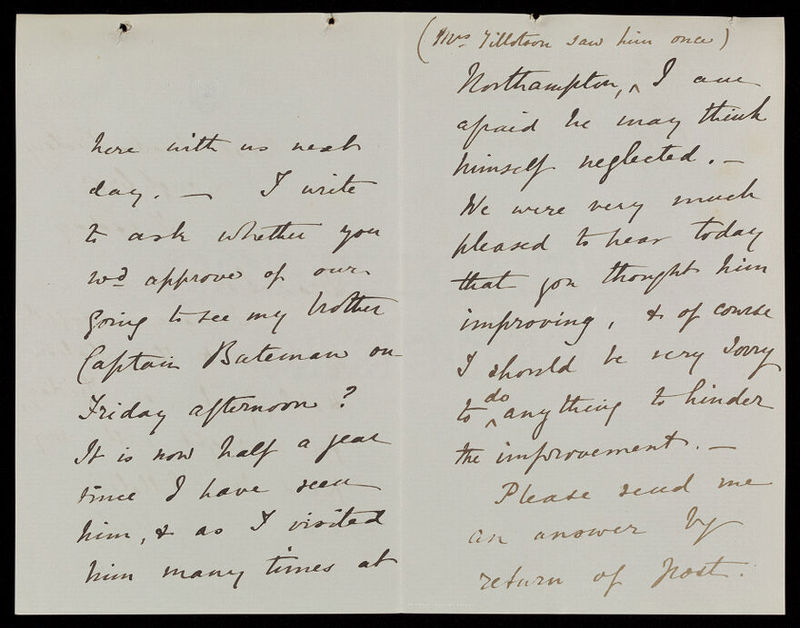 here with us next
day. — I write
to ask whether you
wd approve of our
going to see my brother
Captain Bateman on
Friday afternoon?
It is now half a year
since I have seen
him, & as I visited
him many times at
(Mrs Tillotson saw him once)
Northampton, ^ I am
afraid he may think
himself neglected. —
We were very much
pleased to hear today
that you thought him
improving, & of course
I should be very sorry
to ^do anything to hinder
the improvement. —
Please send me
an answer by
return of post.